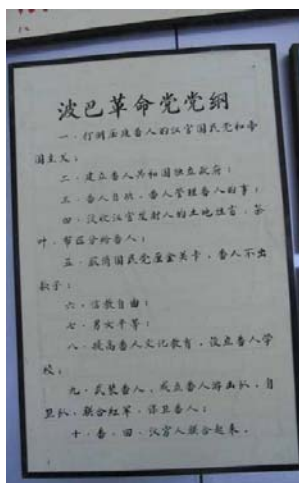 波巴革命党党纲
一·打倒压迫番人的汉官国民党和帝
国主义；
二·建立番人共和国独立政府；
三·番人自决，番人管理番人的事；
四·没收汉官发财人的土地牲畜，茶
叶·布匹分给番人；
五·取消国民党厘金关卡，番人不出
款子；
六·信教自由；
七·男女平等；
八·提高番人文化教育，设立番人学
校；
九·武装番人，成立番人游击队，自
卫队，联合红军，保卫番人；
十·番、回、汉穷人联合起来。